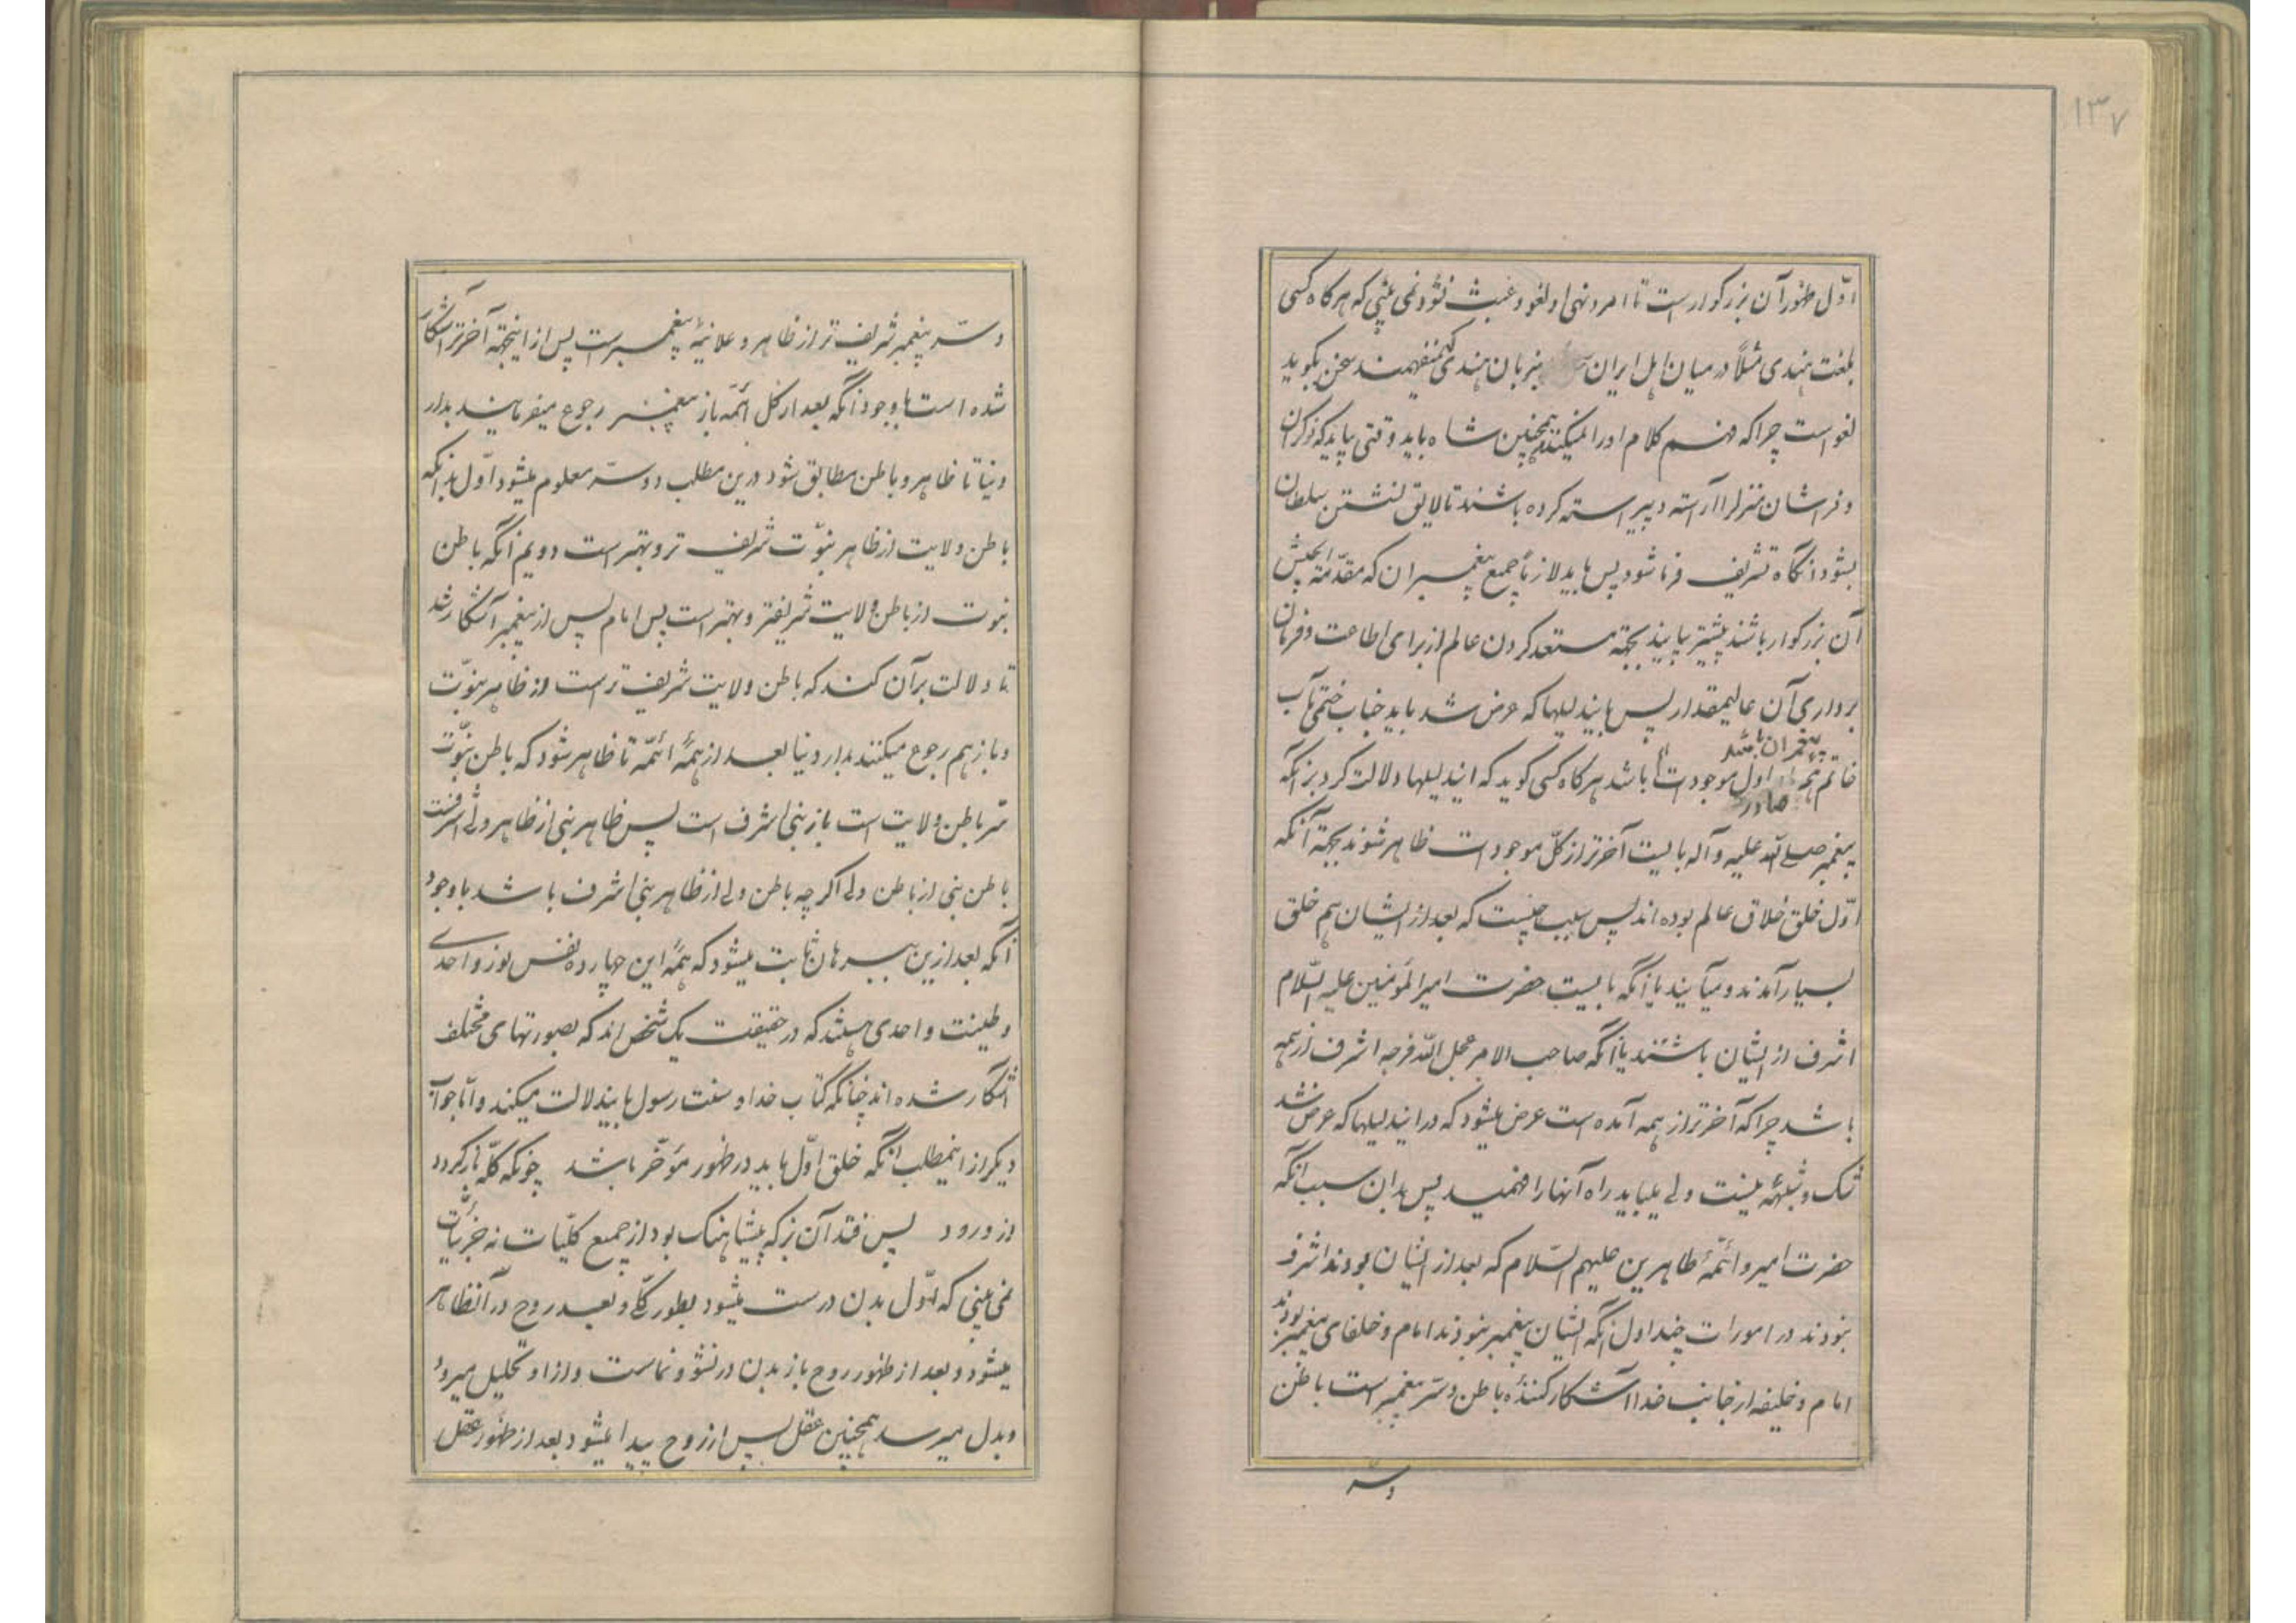 ۱۳۷
اوّل ظهور آن بزرگوارست تا امر و نهی او لغو و عبث نشود نمی بینی که هر کاه کسی
بلغت هندی مثلاً در میان اهل ایران بزبان هندی نمیفهمند سخن بگوید
لغو است چرا که فهم کلام او را نمیکنند همچنین شاه باید وقتی بیاید که نوکران
و فراشان منزل را آراسته و پیراسته کرده باشند تا لایق نشستن سلطان
بشود آنگاه تشریف فرما شود پس باید لازماً جمیع پیغمبران که مقدّمة الجیش
آن بزرگوار باشند پیشتر بیایند بجهة مستعد کردن عالم از برای اطاعت و فرمان
برداری آن عالیمقدار پس باین دلیلها که عرض شد باید جناب ختمی مآب
پیغمبران باشد
خاتم همه اول موجودات باشد هر کاه کسی کوید که این دلیلها دلالت کرد بر آنکه
صادر
پیغمبر صلی الله علیه و آله بایست آخرتر از کلّ موجودات ظاهر شوند بجهة آنکه
اوّل خلق خلاق عالم بوده اند پس سبب چیست که بعد از ایشان هم خلق
بسیار آمدند و میآیند یا آنکه بایست حضرت امیر المؤمنین علیه السّلام
اشرف از ایشان باشند یا آنکه صاحب الامر عجل الله فرجه اشرف از همه
باشد چرا که آخرتر از همه آمده است عرض میشود که در این دلیلها که عرض شد
شک و شبهۀ نیست ولی میباید راه آنها را فهمید پس بدان سبب آنکه
حضرت امیر و ائمّۀ طاهرین علیهم السّلام که بعد از ایشان بودند اشرف
نبودند در امورات چند اول آنکه ایشان پیغمبر نبودند امام و خلفای پیغمبر بودند
امام و خلیفه از جانب خدا آشکار کنندۀ باطن و سرّ پیغمبر است باطن
و سرّ
و سرّ پیغمبر شریف تر از ظاهر و علانیۀ پیغمبر است پس از اینجهة آخرتر آشکار
شده است با وجود آنکه بعد از کل ائمّه باز پیغمبر رجوع میفرمایند بدار
دنیا تا ظاهر و باطن مطابق شود درین مطلب دو سرّ معلوم میشود اوّل بدانکه
باطن ولایت از ظاهر نبوّت شریف تر و بهتر است دویم آنکه باطن
نبوت از باطن ولایت شریفتر و بهتر است پس امام پس از پیغمبر آشکار شد
تا دلالت بر آن کند که باطن ولایت شریف ترست از ظاهر نبوّت
و باز هم رجوع میکنند بدار دنیا بعد از همۀ ائمّه تا ظاهر شود که باطن نبوّت
سّر باطن ولایت است باز نبی اشرف است پس ظاهر نبی از ظاهر ولی اشرفست
باطن نبی از باطن ولی اگر چه باطن ولی از ظاهر نبی اشرف باشد با وجود
آنکه بعد ازین ببرهان ثابت میشود که همۀ این چهارده نفس نور واحدی
و طینت واحدی هستند که در حقیقت یک شخص اند که بصورتهای مختلف
آشکار شده اند چنانکه کتاب خدا و سنت رسول باین دلالت میکند و امّا جواب
دیگر از این مطلب آنکه خلق اوّل باید در ظهور مؤخّر باشد چونکه کلّه باز گردد
از ورود پس فتد آن بز که پیشاهنک بود از جمیع کلّیات نه جزئیّات
نمی بینی که اوّل بدن درست میشود بطور کلّی و بعد روح در آن ظاهر
میشود و بعد از ظهور روح باز بدن در نشو و نماست و از او تحلیل میرود
و بدل میرسد همچنین عقل پس از روح پیدا میشود بعد از ظهور عقل